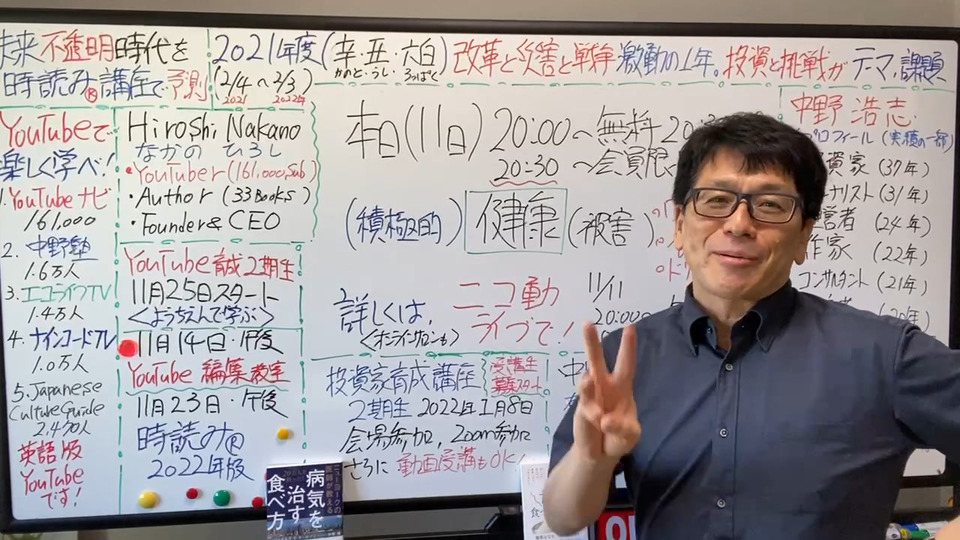 未来不透明時代を
時読み®講座で予測
2021年度(辛・丑・六白)改革と災害と戦争激動の1年。投資と挑戦がテマ、課題
かのと・うし・ろっぱく
(2/4~2/3)
2021 2022年
YouTubeで
楽しく学べ!
1.YouTubeナビ
161,000
2.中野塾
1.6万人
3.エコライフTV
1.4万人
4.ナインコードTV
1.0万人
5.Japanese
Culture Guide
2,470人
英語版
YouTube
です!
Hiroshi Nakano
なかの ひろし
・YouTuber(161,000,Sub)
・Author(33Books)
・Founder & CEO
YouTube育成2期生
11月25日スタート
<ようちえんで学ぶ>
11月14日・午後
YouTube編集教室
11月23日・午後
時読み®
2022年版
本日(11日)20:00~無料
20:30~会員限
(積極的)健康(被害)
詳しくは、ニコ動
ライブで!
<オンラインサロンも>
11/11
20:00
投資家育成講座
受講生
募集スタート
2期生 2022年1月8日
会場参加、Zoom参加
さらに動画受講もOK!
中野 浩志
プロフィール(実績の一部)
資家(37年)
ナリスト(31年)
営者(24年)
作家(22年)
コンサルタント(21年)
(20年)
病気を
治す
食べ方